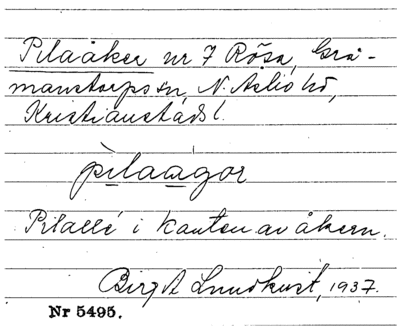 Pilaåker nr 7 Rösa, Grå-
manstorps sn, N. Asbo hd,
Kristianstads l.
pilaagor
Pilallé i kanten av åkern.
Birgit Lundkvist, 1937.
Nr 5495.